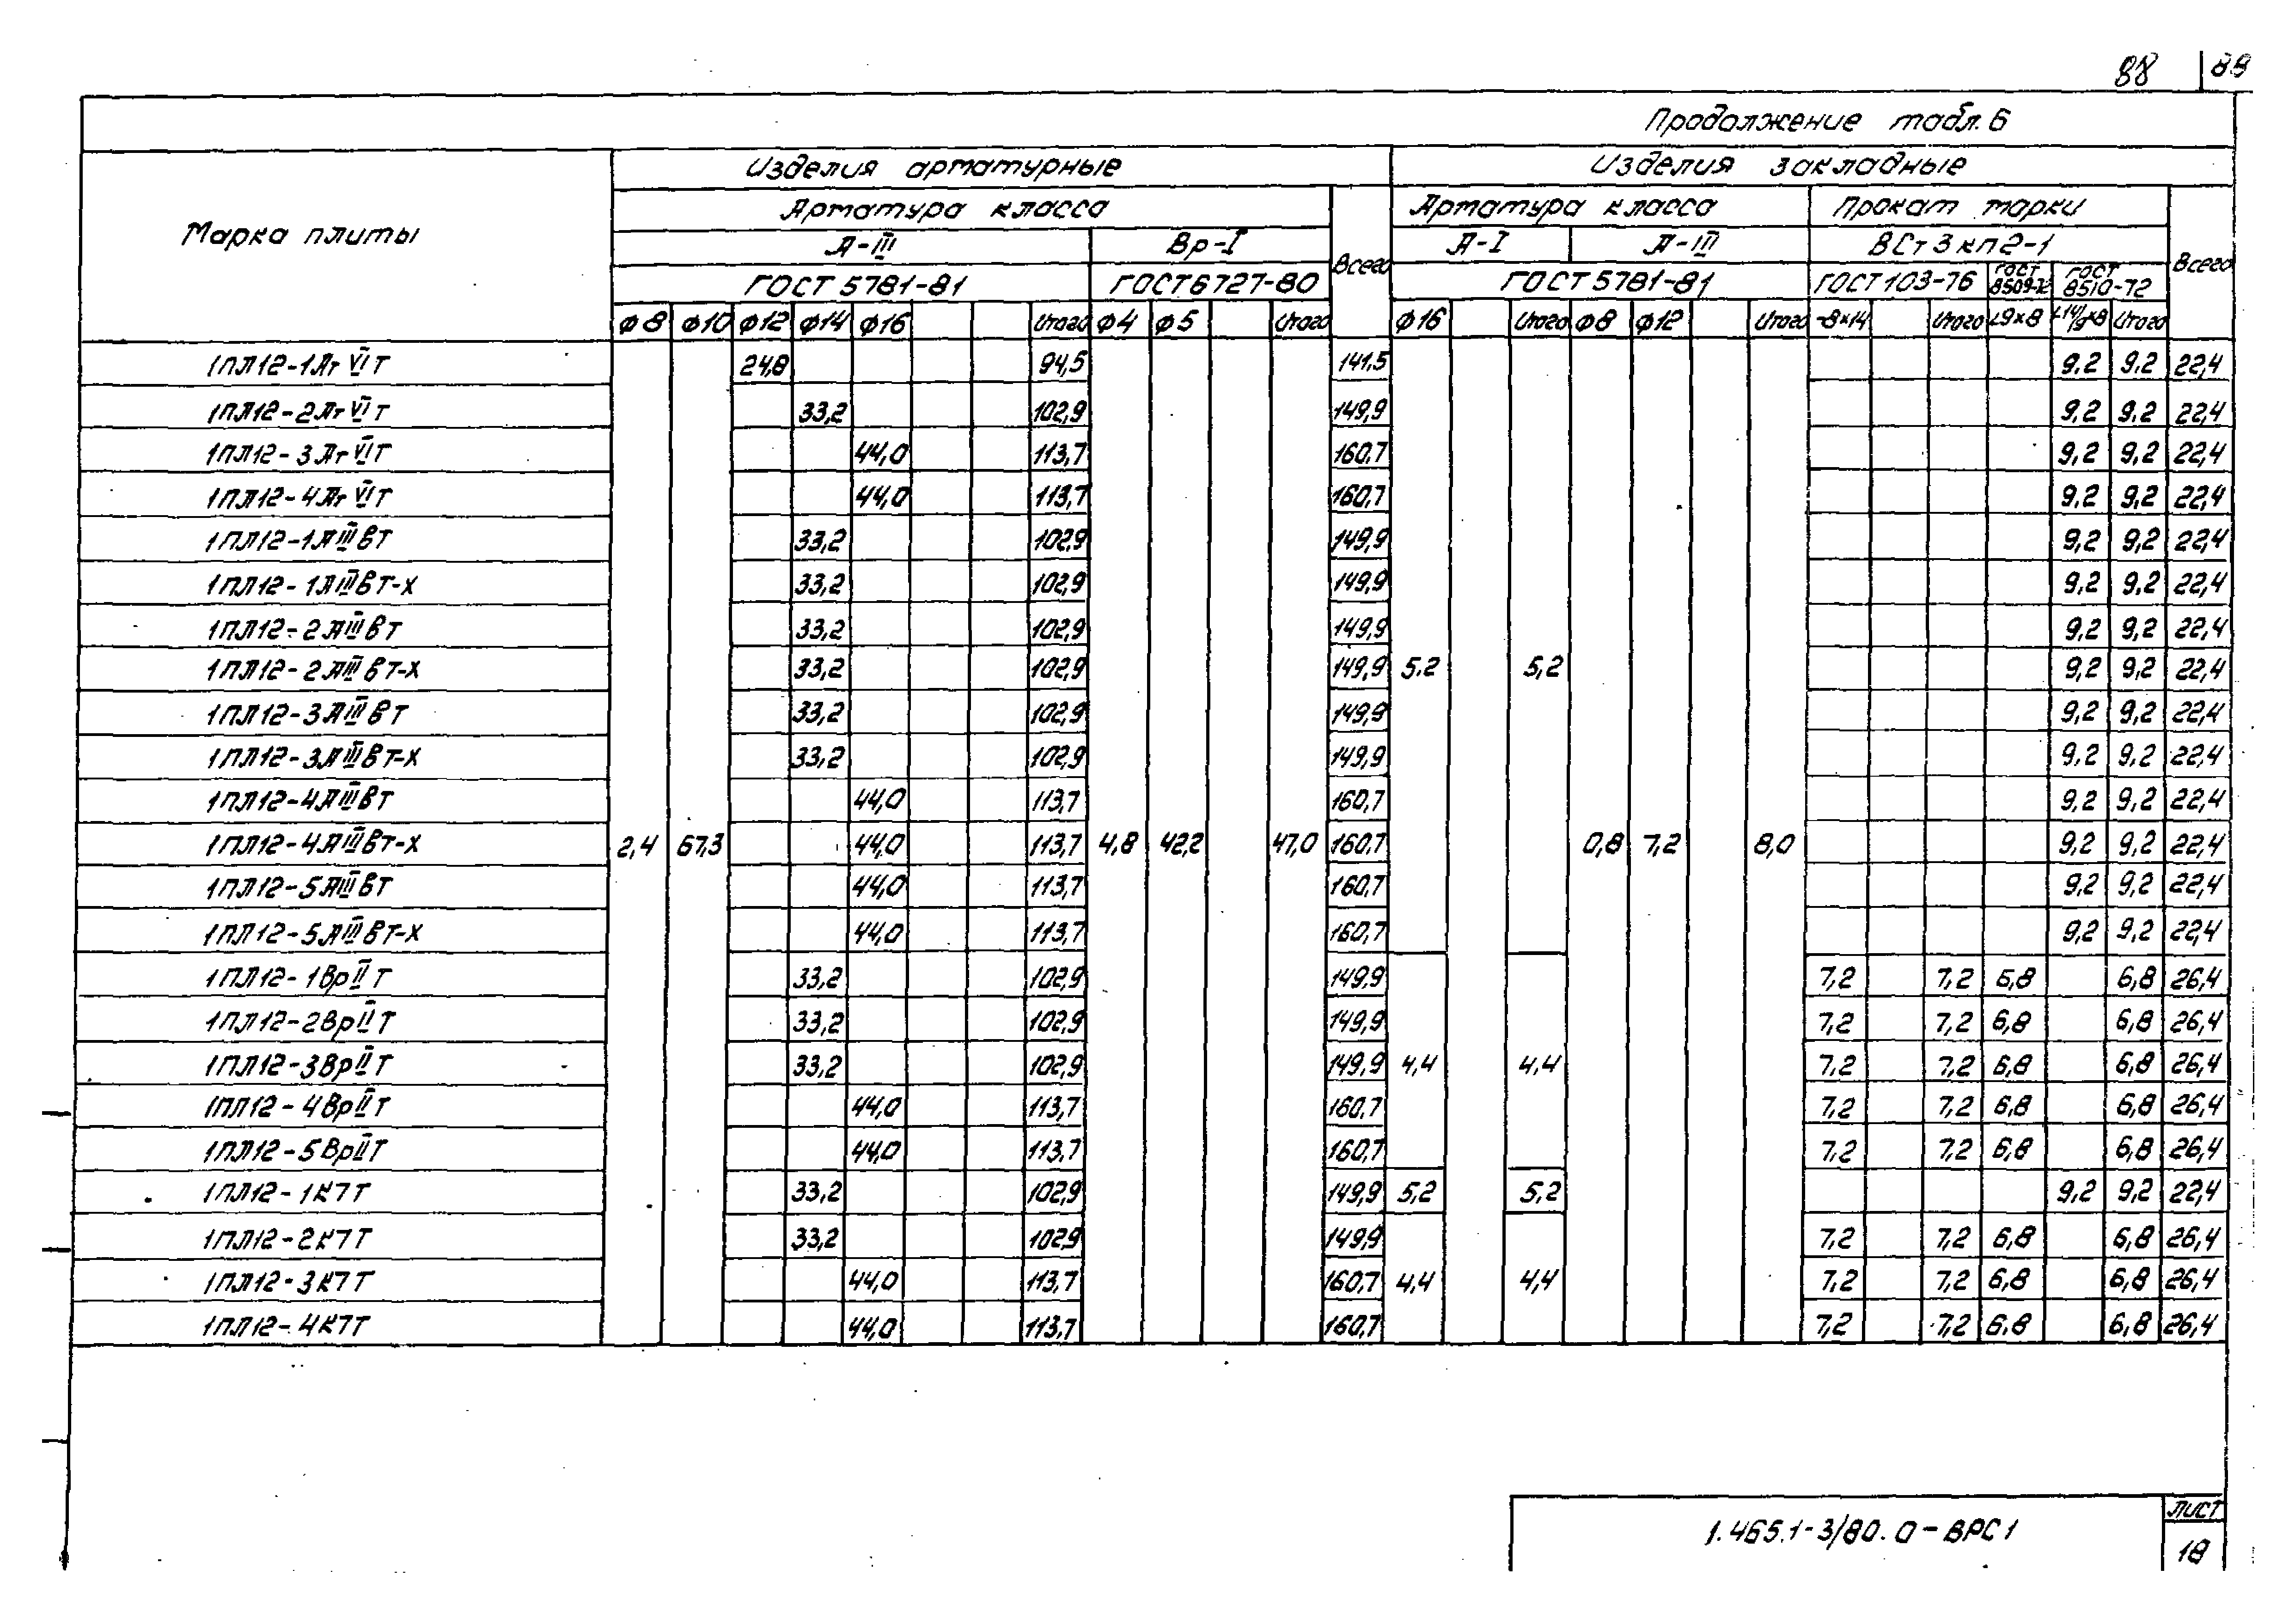 88 89
Продолжение табл. 6
Марка плиты Изделия арматурные Изделия закладные
Арматура класса Всего Арматура класса Прокат марки Всего
А-III Вр-I А-I А-III ВСт3кп2-1
ГОСТ 5781-81 ГОСТ 6727-80 ГОСТ 5781-81 ГОСТ 103-76 ГОСТ 8509-72 ГОСТ 8510-72
Ф8 Ф10 Ф12 Ф14 Ф16 Итого Ф4 Ф5 Итого Ф16 Итого Ф8 Ф12 Итого -8×14 Итого L9×8 L14/9×8 Итого
1ПЛ12-1АтVIТ 24,8 94,5 141,5 9,2 9,2 22,4
1ПЛ12-2АтVIТ 33,2 102,9 149,9 9,2 9,2 22,4
1ПЛ12-3АтVIТ 44,0 113,7 160,7 9,2 9,2 22,4
1ПЛ12-4АтVIТ 44,0 113,7 160,7 9,2 9,2 22,4
1ПЛ12-1АIIIвТ 33,2 102,9 149,9 9,2 9,2 22,4
1ПЛ12-1АIIIвТ-х 33,2 102,9 149,9 9,2 9,2 22,4
1ПЛ12-2АIIIвТ 33,2 102,9 149,9 9,2 9,2 22,4
1ПЛ12-2АIIIвТ-х 33,2 102,9 149,9 5,2 5,2 9,2 9,2 22,4
1ПЛ12-3АIIIвТ 33,2 102,9 149,9 9,2 9,2 22,4
1ПЛ12-3АIIIвТ-х 33,2 102,9 149,9 9,2 9,2 22,4
1ПЛ12-4АIIIвТ 44,0 113,7 160,7 9,2 9,2 22,4
1ПЛ12-4АIIIвТ-х 2,4 67,3 44,0 113,7 4,8 42,2 47,0 160,7 0,8 7,2 8,0 9,2 9,2 22,4
1ПЛ12-5АIIIвТ 44,0 113,7 160,7 9,2 9,2 22,4
1ПЛ12-5АIIIвТ-х 44,0 113,7 160,7 9,2 9,2 22,4
1ПЛ12-1ВрIIТ 33,2 102,9 149,9 7,2 7,2 6,8 6,8 26,4
1ПЛ12-2ВрIIТ 33,2 102,9 149,9 7,2 7,2 6,8 6,8 26,4
1ПЛ12-3ВрIIТ 33,2 102,9 149,9 4,4 4,4 7,2 7,2 6,8 6,8 26,4
1ПЛ12-4ВрIIТ 44,0 113,7 160,7 7,2 7,2 6,8 6,8 26,4
1ПЛ12-5ВрIIТ 44,0 113,7 160,7 7,2 7,2 6,8 6,8 26,4
1ПЛ12-1К7Т 33,2 102,9 149,9 5,2 5,2 9,2 9,2 22,4
1ПЛ12-2К7Т 33,2 102,9 149,9 7,2 7,2 6,8 6,8 26,4
1ПЛ12-3К7Т 44,0 113,7 160,7 4,4 4,4 7,2 7,2 6,8 6,8 26,4
1ПЛ12-4К7Т 44,0 113,7 160,7 7,2 7,2 6,8 6,8 26,4
1.465.1-3/80.0-ВРС1 Лист
18